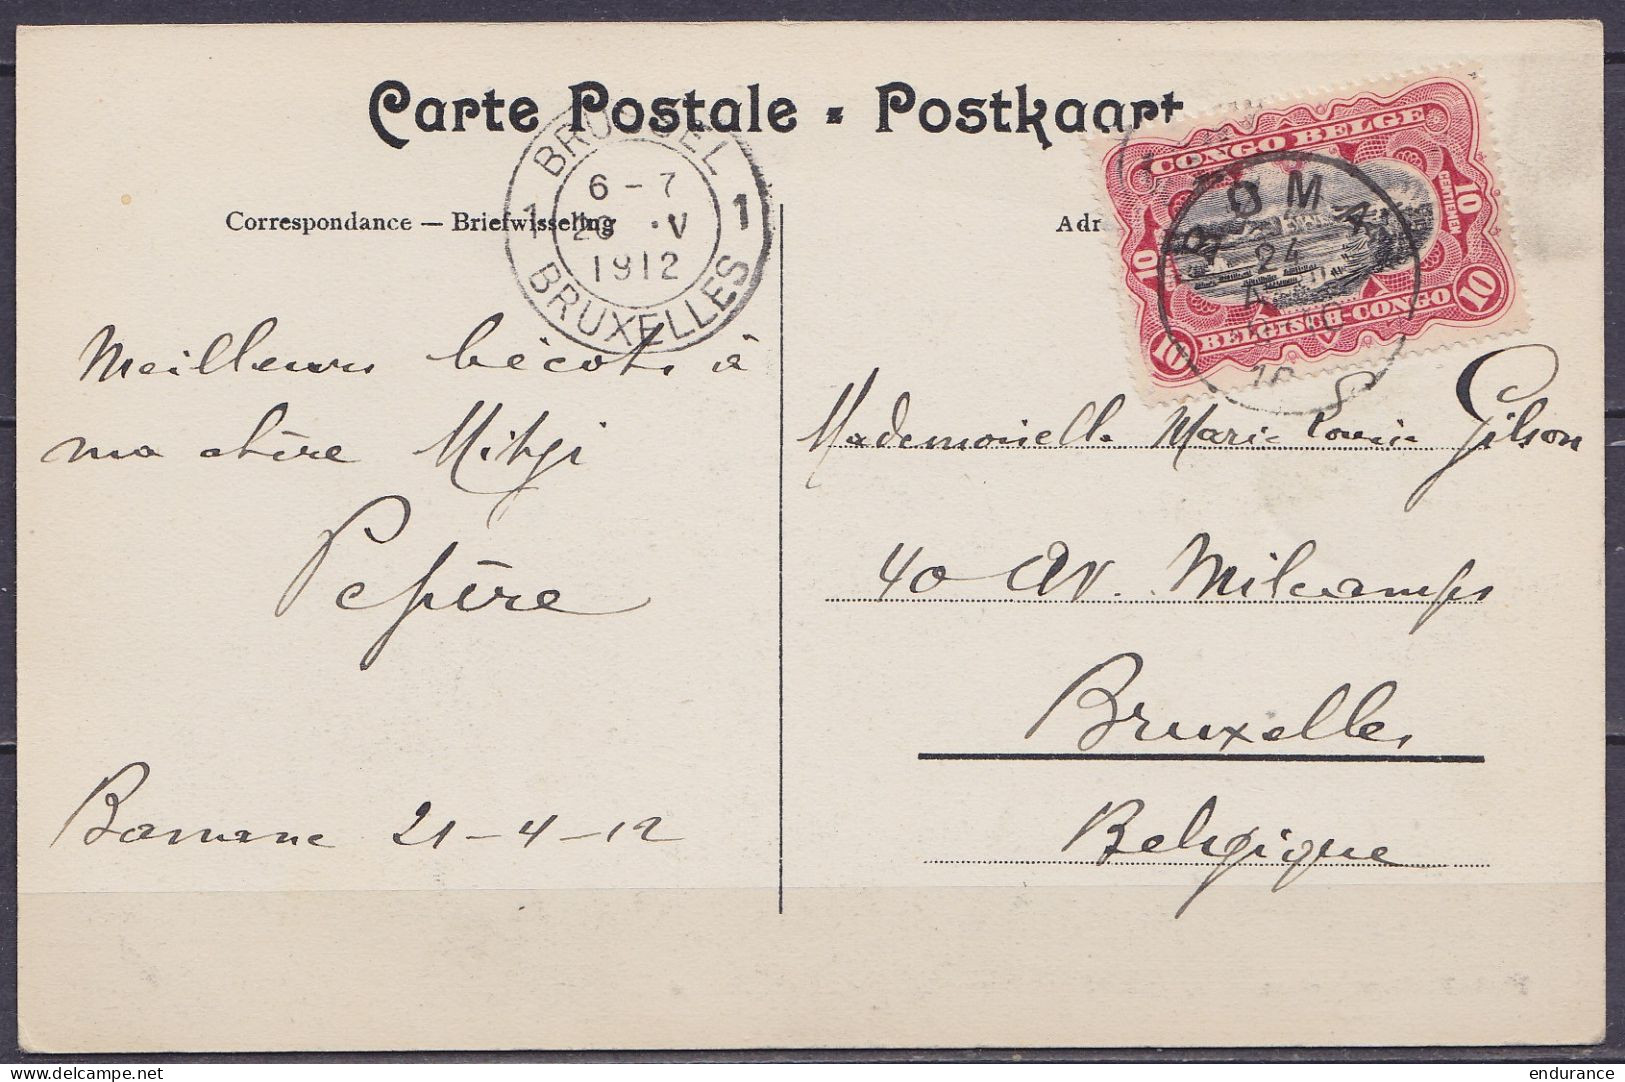 Carte Postale - Postkaart
BRUSSEL
1 1
6 - 7
V
1912
BRUXELLES
Correspondance — Briefwisseling
Adr
CONGO BELGE
10 CENTIEMEN
10
BELGISCH-CONGO
10 10
BOMA
24
Meilleurs bécots à
ma chère
Pepère
Banane 21-4-12
Mademoiselle Marie Louise Gilson
40 Av. Milcamps
Bruxelles
Belgique
delcampe.net
endurance